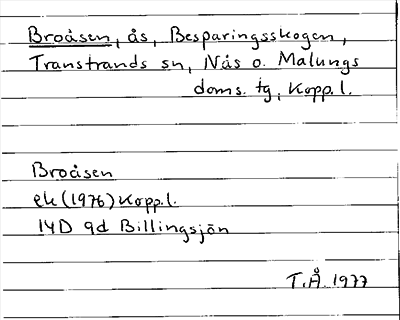 Broåsen, ås, Besparingsskogen,
Transtrands sn, Nås o. Malungs
doms. tg, Kopp.l.
Broåsen
ek (1976) Kopp.l.
14D 9d Billingsjön
T.Å. 1977